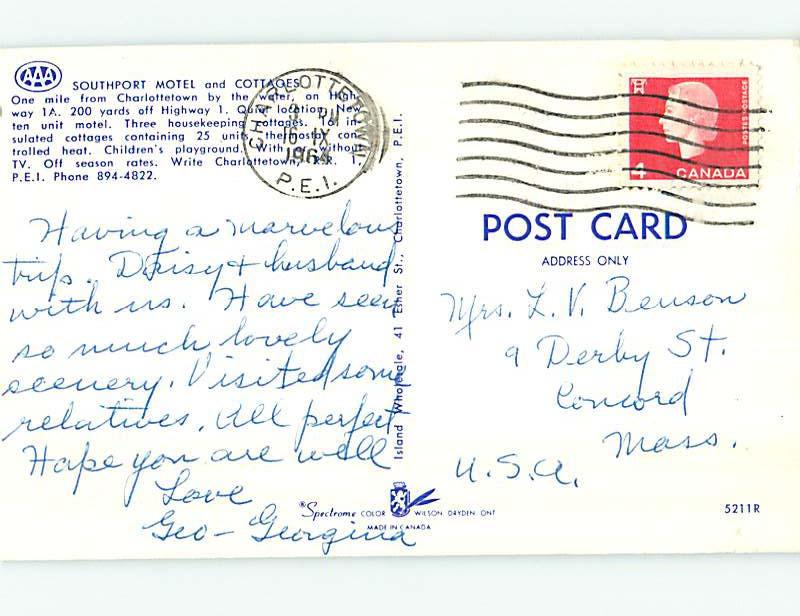 AAA
SOUTHPORT MOTEL and COTTAGES
One mile from Charlottetown by the water, on High-
way 1A. 200 yards off Highway 1. Quiet location. New
ten unit motel. Three housekeeping cottages. 16 in-
sulated cottages containing 25 units, thermostat con-
trolled heat. Children's playground. With or without
TV. Off season rates. Write Charlottetown, R.R. 1,
P.E.I. Phone 894-4822.
CHARLOTTETOWN
PM
16 IX
1964
P.E.I.
Having a marvelous
trip. Daisy + husband
with us. Have seen
so much lovely
scenery. Visited some
relatives. All perfect
Hope you are well
Love
Geo - Georgina
Island Wholesale, 41 Esher St., Charlottetown, P.E.I.
4
CANADA
POSTES POSTAGE
POST CARD
ADDRESS ONLY
Mrs. L. V. Benson
9 Derby St.
Concord
Mass.
U.S.A.
®Spectrome COLOR WILSON, DRYDEN, ONT
MADE IN CANADA
5211R